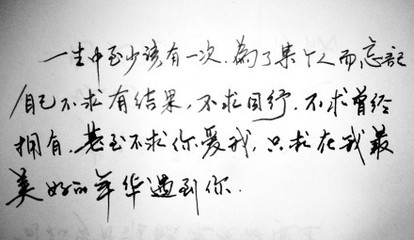 一生中至少该有一次.为了某个人而忘記
自己不求有结果,不求同行,不求曾经
拥有,甚至不求你爱我,只求在我最
美好的年华遇到你.